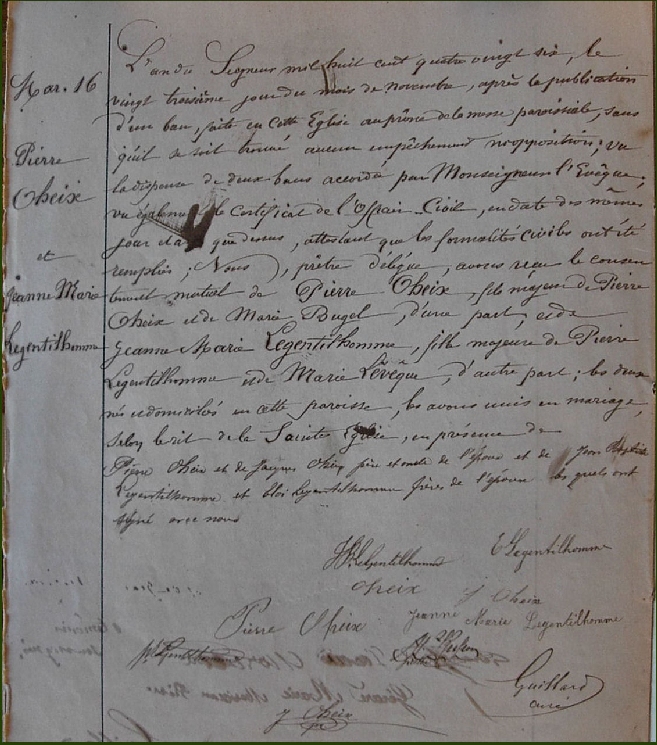 Mar. 16
Pierre
Oheix
et
Jeanne Marie
Legentilhomme
L'an du Seigneur mil huit cent quatre vingt six, le
vingt troisième jour du mois de novembre, après la publication
d'un ban, faite en cette Eglise au prône de la messe paroissiale, sans
qu'il se soit trouvé aucun empêchement ni opposition; vu
la dispense de deux bans accordée par Monseigneur l'Evêque;
vu également le certificat de l'Officier Civil, en date des mêmes
jour et an que dessus, attestant que les formalités civiles ont été
remplies; Nous, prêtre délégué, avons reçu le consen
tement mutuel de Pierre Oheix, fils majeur de Pierre
Oheix et de Marie Rugel, d'une part, et de
Jeanne Marie Legentilhomme, fille majeure de Pierre
Legentilhomme et de Marie Lévêque, d'autre part; les deux
nés et domiciliés en cette paroisse, les avons unis en mariage,
selon le rit de la Sainte Eglise, en présence de
Pierre Oheix et de Jacques Oheix père et oncle de l'époux et de Jean Baptiste
Legentilhomme et Eloi Legentilhomme frères de l'épouse les quels ont
signé avec nous
JB Legentilhomme
E Legentilhomme
Oheix
J Oheix
Pierre Oheix
Jeanne Marie Legentilhomme
Guillard
curé
J Oheix